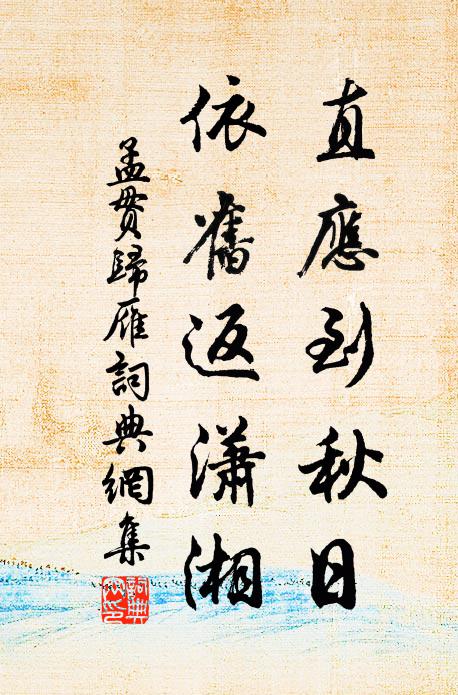 直應到秋日
依舊返瀟湘
孟贯歸雁詞典網集